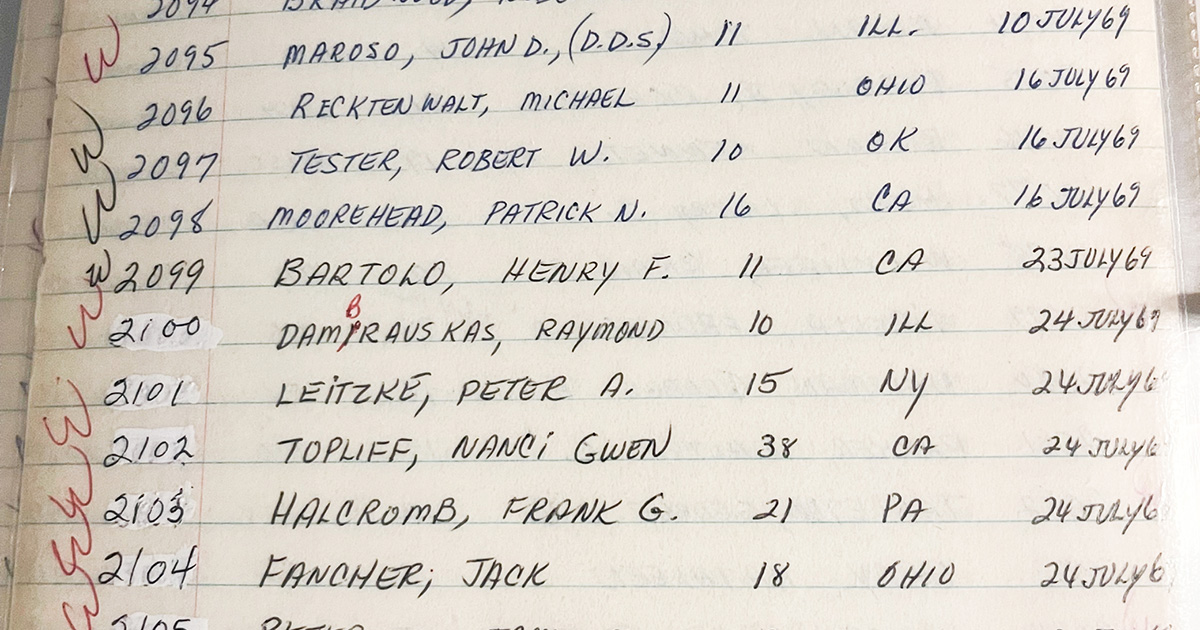 2094
W 2095 MAROSO, JOHN D., (D.D.S.) 11 ILL. 10 JULY 69
2096 RECKTENWALT, MICHAEL 11 OHIO 16 JULY 69
W 2097 TESTER, ROBERT W. 10 OK 16 JULY 69
W 2098 MOOREHEAD, PATRICK N. 16 CA 16 JULY 69
W 2099 BARTOLO, HENRY F. 11 CA 23 JULY 69
B
W 2100 DAMRAUSKAS, RAYMOND 10 ILL 24 JULY 69
2101 LEITZKE, PETER A. 15 NY 24 JULY 6
W 2102 TOPLIFF, NANCI GWEN 38 CA 24 JULY 6
W 2103 HALCROMB, FRANK G. 21 PA 24 JULY 6
W 2104 FANCHER, JACK 18 OHIO 24 JULY 6
W 2105